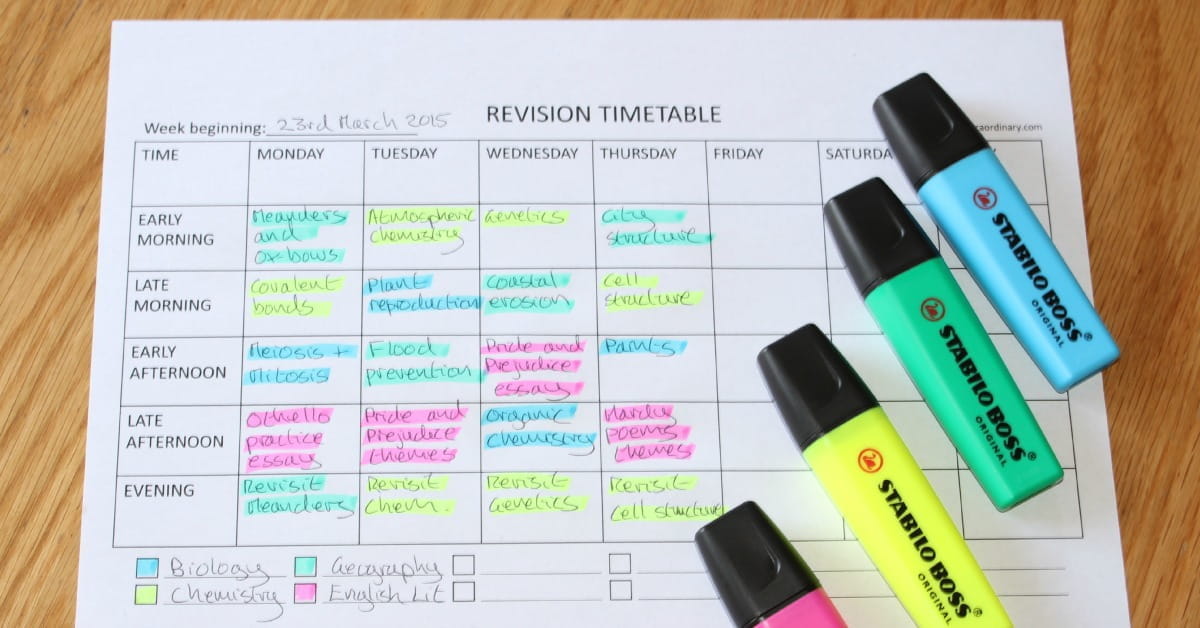 REVISION TIMETABLE
Week beginning: 23rd March 2015
raordinary.com
TIME MONDAY TUESDAY WEDNESDAY THURSDAY FRIDAY SATURDA
EARLY MORNING
Meanders
and
ox bows
Atmospheric
chemistry
Genetics
City
structure
LATE MORNING
Covalent
bonds
Plant
reproduction
Coastal
erosion
Cell
structure
EARLY AFTERNOON
Meiosis +
Mitosis
Flood
prevention
Pride and
Prejudice
essay
Plants
LATE AFTERNOON
Othello
practice
essay
Pride and
Prejudice
themes
Organic
chemistry
Hardy
poems
themes
EVENING
Revisit
Meanders
Revisit
Chem.
Revisit
Genetics
Revisit
Cell structure
Biology Geography
Chemistry English Lit
STABILO BOSS
ORIGINAL
STABILO BOSS
ORIGINAL
STABILO BOSS
ORIGINAL